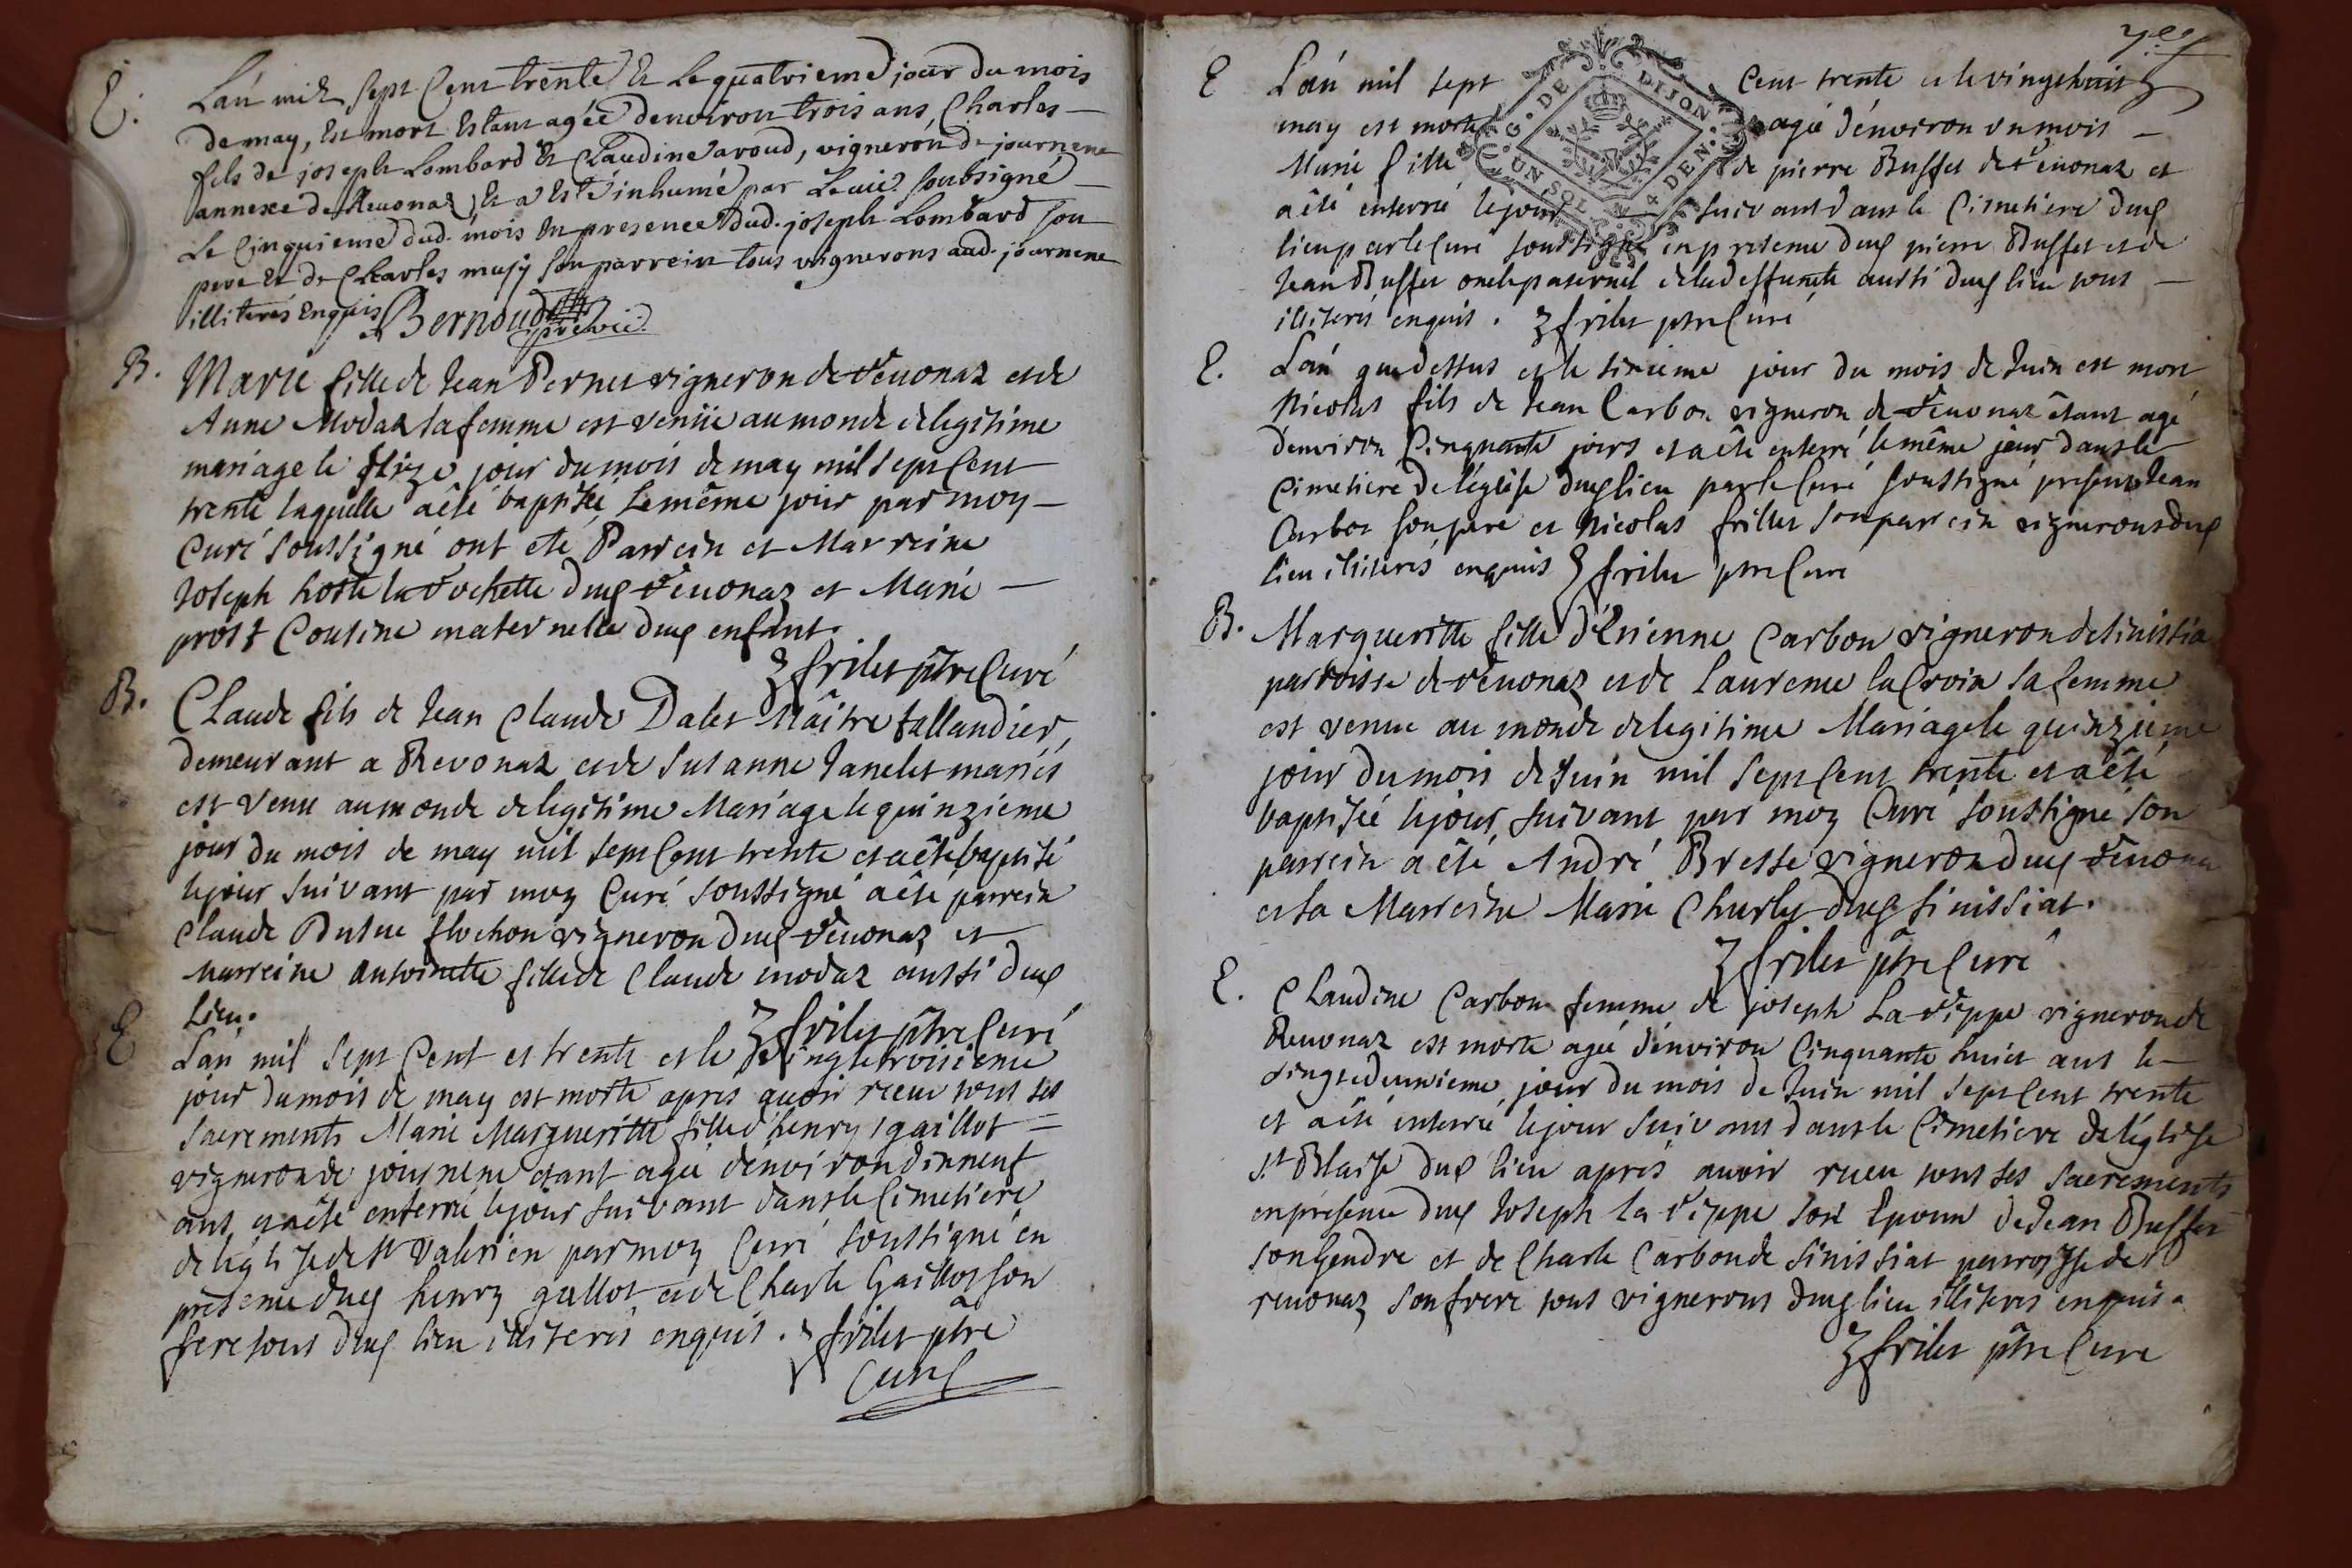 E.
L'an mil sept cent trente & le quatrieme jour du mois
de may, Est mort Estant agée denviron trois ans, Charles
fils de joseph Lombard & Claudine avoud, vigneron de journene
annexe de Revonaz, Et a Esté inhumé par Levic. soubsigné
Le Cinquieme dud. mois En presence dud. joseph Lombard son
pere Et de Charles musy son parrein tous vignerons aud. journene
illiterés Enquis Bernoud ptre vic.
B.
Marie fille de Jean Pernet vigneron de Revonaz et de
Anne Modaz sa femme est venüe au monde de legitime
mariage le jour du mois de may mil sept cent
trente laquelle a été baptisée le même jour par moy
Curé soussigné ont eté Parrein et Marreine
Joseph hoste la Vochette dud. Revonaz et Marie
prost Cousine maternelle dud. enfant.
frilet ptre Curé
B.
Claude fils de Jean Claude Dalet Maître tallandier,
demeurant a Revonaz et de Susanne Janelet mariés
est venu au monde de legitime Mariage le quinzieme
jour du mois de may mil sept cent trente et a été baptisé
le jour suivant par moy Curé soussigné a été parrein
Claude flochon vigneron dud. Revonaz et
marreine Antoinette fille de Claude modaz aussi dud.
Lieu.
frilet ptre Curé
E
L'an mil sept cent et trente et le vingt troisieme
jour du mois de may est morte apres avoir receu tous ses
sacrements Marie Margueritte fille d'henry gaillot
vigneron de journene etant agée denviron dinneuf
ans, et a été enterrée le jour suivant dans le Cimetiere
de léglise de st Valerien par moy Curé soussigné en
présence dud. henry gallot et de Charle Gaillot son
frere tous dud. lieu illiterés enquis. frilet ptre
Curé
E
L'an mil sept cent trente et le vingt huit
may est morte agée d'environ un mois
Marie fille de pierre Buffet de Revonaz et
a été enterrée le jour suivant dans le Cimetiere dud.
lieu par le Curé soussigné en présence dud. pierre Buffet et de
Jean Buffet oncle paternel de lad. deffunte aussi dud. lieu tous
illiterés enquis. frilet ptre Curé
G. DE DIJON
UN SOL 4 DEN.
E.
L'an que dessus et le sixieme jour du mois de Juin est mort
Nicolas fils de Jean Carbon vigneron de Revonaz étant agé
d'environ Cinquante jours et a été enterré le même jour dans le
Cimetiere de l'église dud. lieu par le Curé soussigné présent Jean
Carbon son pere et Nicolas frillet son parrein vignerons dud.
lieu illiterés enquis frilet ptre Curé
B.
Margueritte fille d'Etienne Carbon vigneron de sinissia
parroisse de Revonaz et de Laurence la Croix sa femme
est venue au monde de legitime Mariage le quinzieme
jour du mois de Juin mil sept cent trente et a été
baptisée le jour suivant par moy Curé soussigné son
parrein a été André Bresse vigneron dud. Revonaz
et sa Marreine Marie Charlet dud. sinissiat.
frilet ptre Curé
E.
Claudine Carbon femme de joseph La Vippe vigneron de
Revonaz est morte agée d'environ Cinquante huict ans le
vingt deuxieme jour du mois de Juin mil sept cent trente
et a été enterrée le jour suivant dans le Cimetiere de l'église
St Blaise dud. lieu aprés avoir receu tous ses sacrements
en présence dud. Joseph la Vippe son Epoux de Jean Buffet
son gendre et de Charle Carbon de sinissiat parroisse de
revonaz son frere tous vignerons dud. lieu illiterés enquis.
frilet ptre Curé